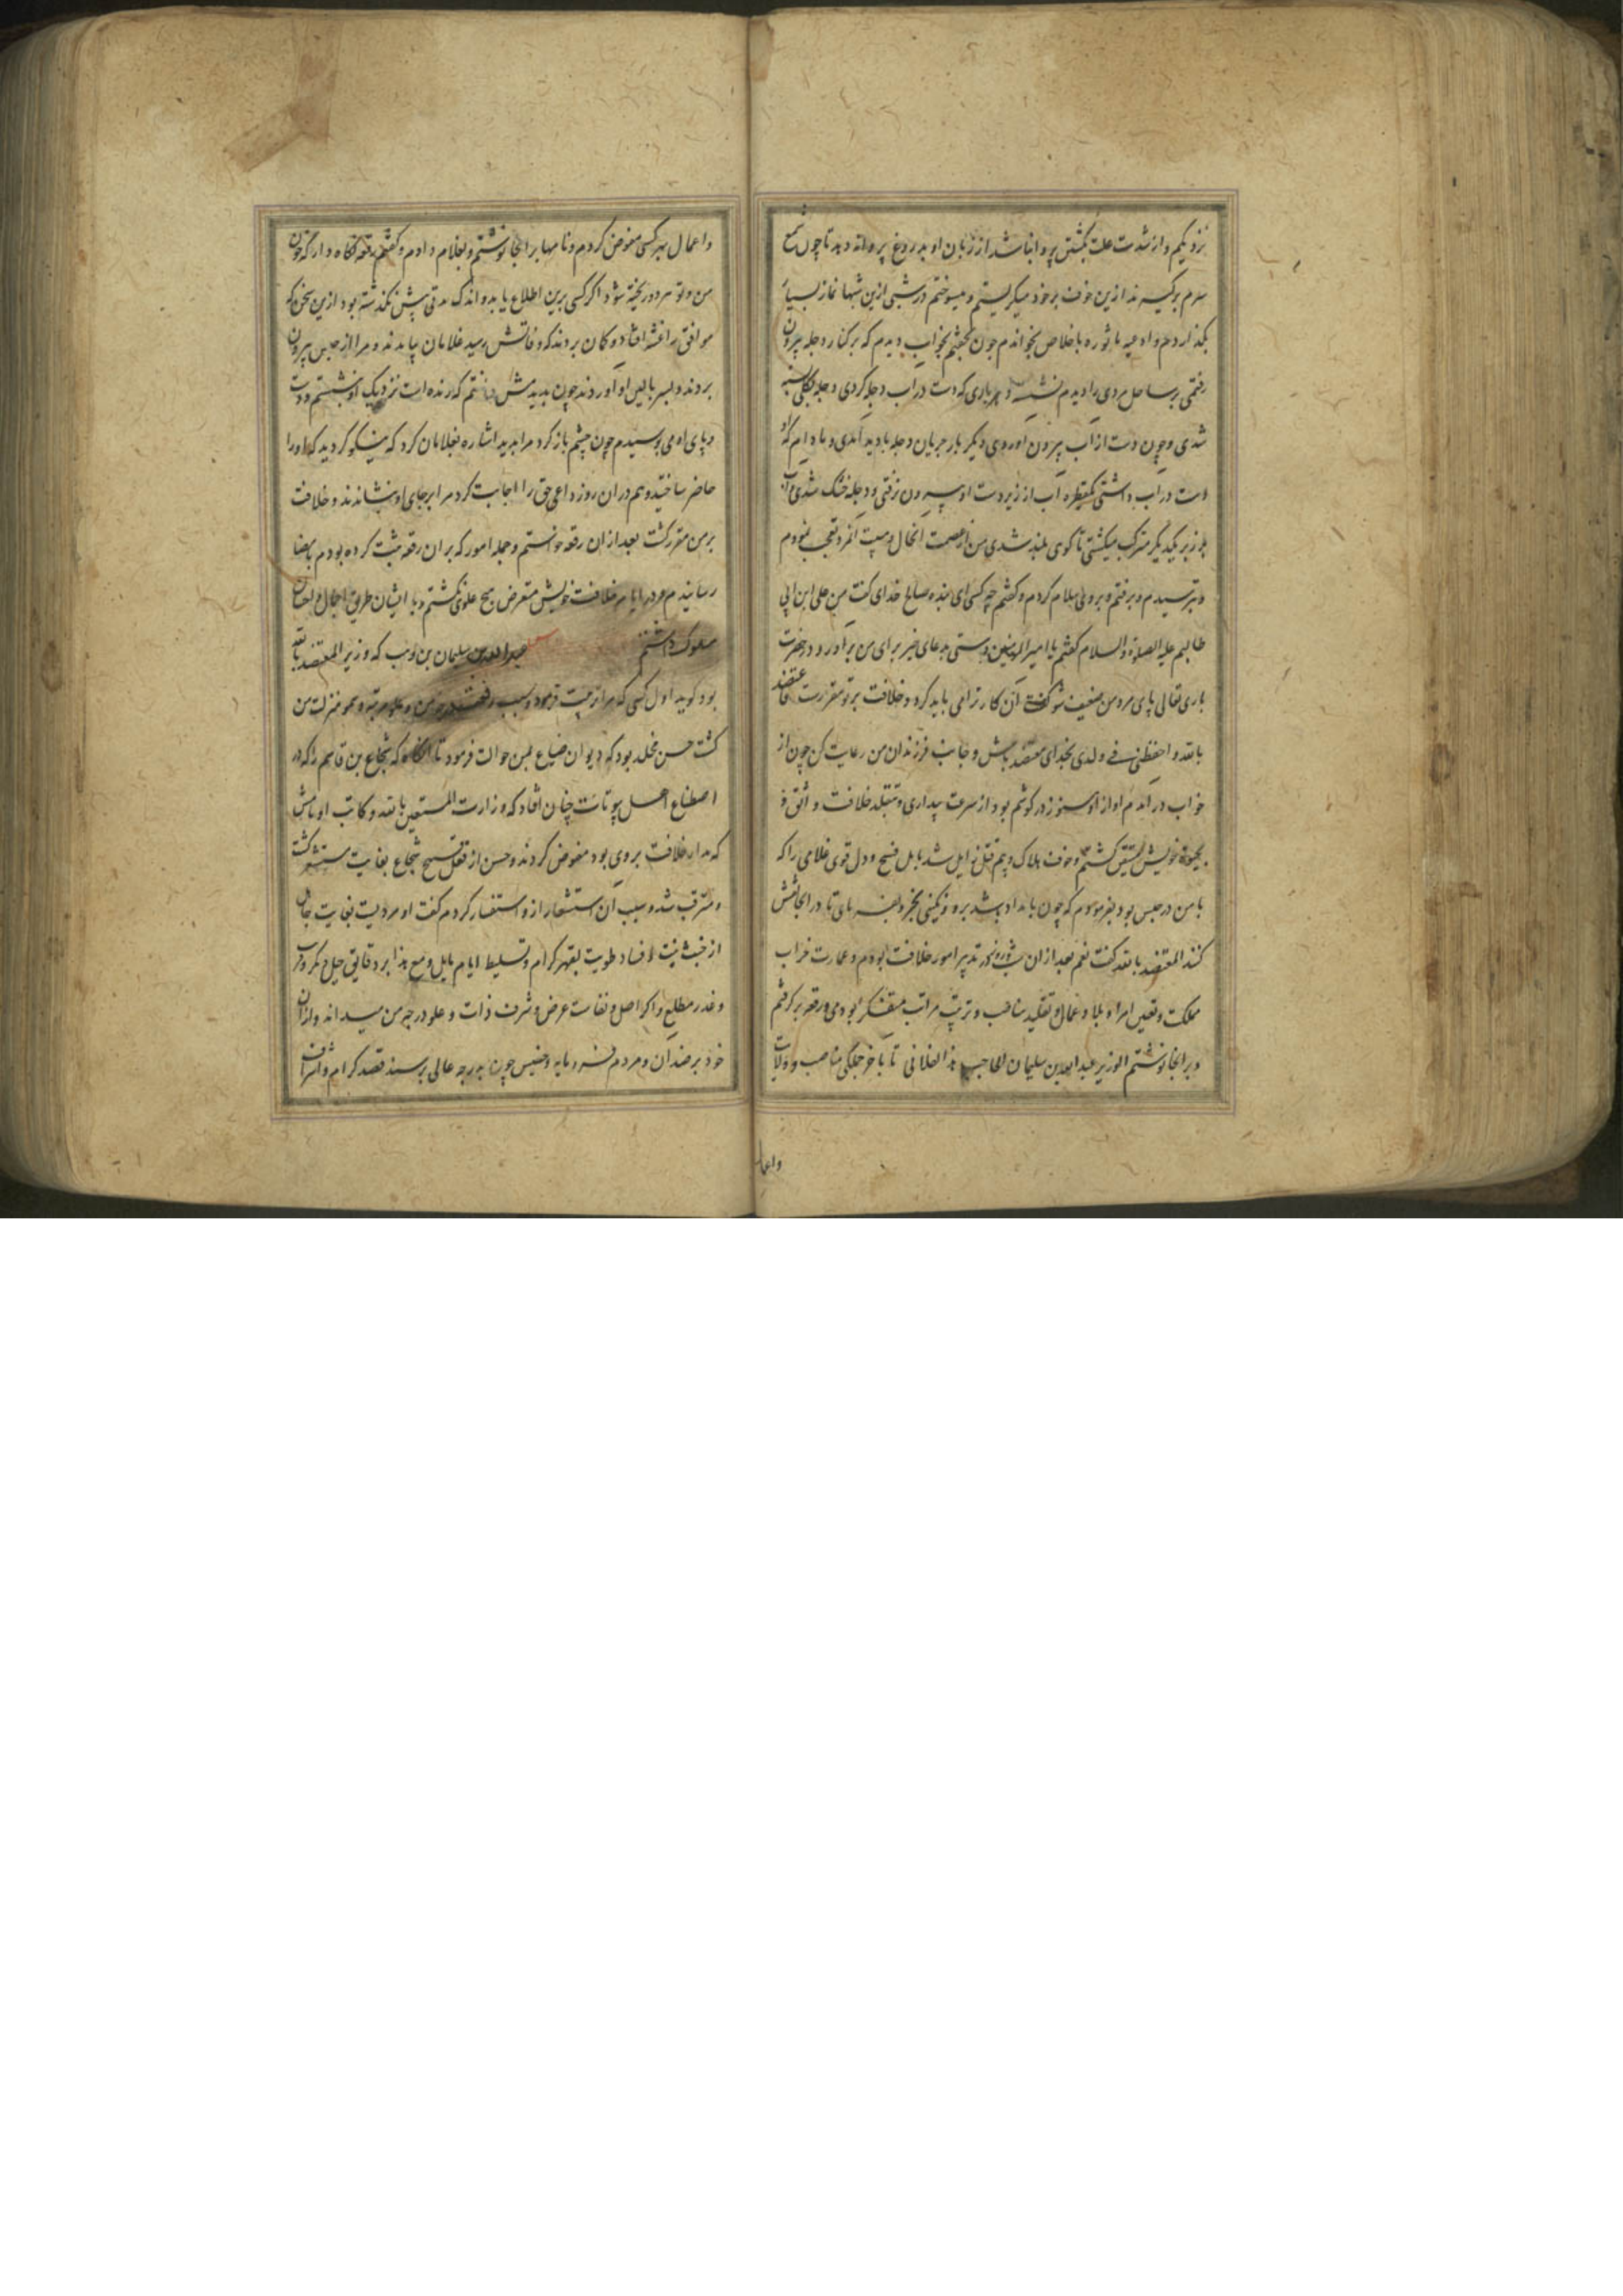 نزدیکم و از شدت علت بکشتن پروا نباشد از زبان او بدروغ پروانه دهد تا چون شمع
سرم برگیرند ازین خوف بر خود میگریستم و میسوختم در شبی ازین شبها نماز بسیار
بگذاردم و ادعیه ماثوره باخلاص بخواندم چون بخفتم بخواب دیدم که بر کنار دجله بیرون
رفتمی بر ساحل مردی را دیدم نشسته و هر باری که دست در آب دجله کردی دجله بکلی بسته
شدی و چون دست از آب بیرون اوردی دیگر بار جریان دجله بادید آمدی و مادام که
دست در آب داشتی یکقطره آب از زیر دست او بیرون نرفتی و دجله خشک شدی و آب
بر زبر یکدیگر متراکب میگشتی تا کوی بلند شدی من از عصمت انحال و هیبت انمرد تعجب نمودم
و بترسیدم و برفتم و بر وی سلام کردم و گفتم چه کسی ای بنده صالح خدای گفت من علی ابن ابی
طالبم علیه الصلوة والسلام گفتم یا امیرالمؤمنین دستی بدعای خیر برای من برآور و در حضرت
باری تعالی پای مرد من ضعیف شو گفت آن کار ترا می باید کرد و خلافت بر تو مقررست فاعتضد
بالله و احفظنی فی ولدی بخدای معتضد باش و جانب فرزندان من رعایت کن چون از
خواب در آمدم اواز او هنوز در گوشم بود از سرعت بیداری و بتقلد خلافت واثق و
بحیوة خویش مستیقن گشتم و خوف هلاک و بیم قتل زایل شد بامل فسیح و دل قوی غلامی را که
با من در حبس بود بفرمودم که چون بامداد باشد برو و نگینی بخر و بفرمای تا در انجا نقش
کنند المعتضد بالله گفت نعم بعد از ان شب و روز در تدبیر امور خلافت بودم و عمارت خراب
مملکت و تعیین امراء بلاد و عمال و تقلید مناصب و ترتیب مراتب متفکر بودمی و رقعه برگرفتم
و بر انجا نوشتم الوزیر عبدالله بن سلیمان الحاجب هذا الفلانی تا باخر جملگی مناصب و ولایات
واعما
و اعمال بهر کسی مفوض کردم و نامها بر انجا نوشتم و بغلام دادم و گفتم رقعه نگاه دار که خون
من و تو هر دو ریخته شود اگر کسی برین اطلاع یابد و اندک مدتی بیش نگذشته بود ازین سخن که
موافق را غشی افتاد و گمان بردند که وفاتش رسید غلامان بیامدند و مرا از حبس بیرون
بردند و بسر بالین او آوردند چون بدیدمش دانستم که زنده است نزدیک او بنشستم و دست
و پای او می بوسیدم چون چشم باز کرد مرا بدید اشاره بغلامان کرد که نیکو کردید که او را
حاضر ساختید و هم دران روز داعی حق را اجابت کرد مرا بر جای او بنشاندند و خلافت
بر من مقرر گشت بعد از ان رقعه خواستم و جمله امور که بر ان رقعه ثبت کرده بودم بامضا
رسانیدم و در ایام خلافت خویش متعرض هیچ علوی نگشتم و با ایشان طریق اجمال و احسان
مسلوک داشتم عبدالله بن سلیمان بن وهب که وزیر المعتضد بالله
بود گوید اول کسی که مرا تربیت فرمود و سبب رفعت درجه من و علو مرتبه و سمو منزلت من
گشت حسن مخلد بود که دیوان ضیاع بمن حوالت فرمود تا انگاه که شجاع بن قاسم را که از
اصطناع اهل بیوتات چنان افتاد که وزارت المستعین بالله و کاتب اوتامش
که مدار خلافت بر وی بود مفوض کردند و حسن از تقلد شجاع بغایت مستشعر گشت
و مترقب شد و سبب آن استشعار ازو استفسار کردم گفت او مردیست بغایت جاهل
از خبث نیت و فساد طویت بقهر کرام و تسلیط ایام مایل و مع هذا بر دقایق حیل و مکر و فریب
و غدر مطلع و اکرا اصل و نفاست عرض و شرف ذات و علو درجه من میداند و از ان
خود بر ضد آن و مردم فرومایه و خسیس چون بدرجه عالی برسند قصد کرام و اشراف